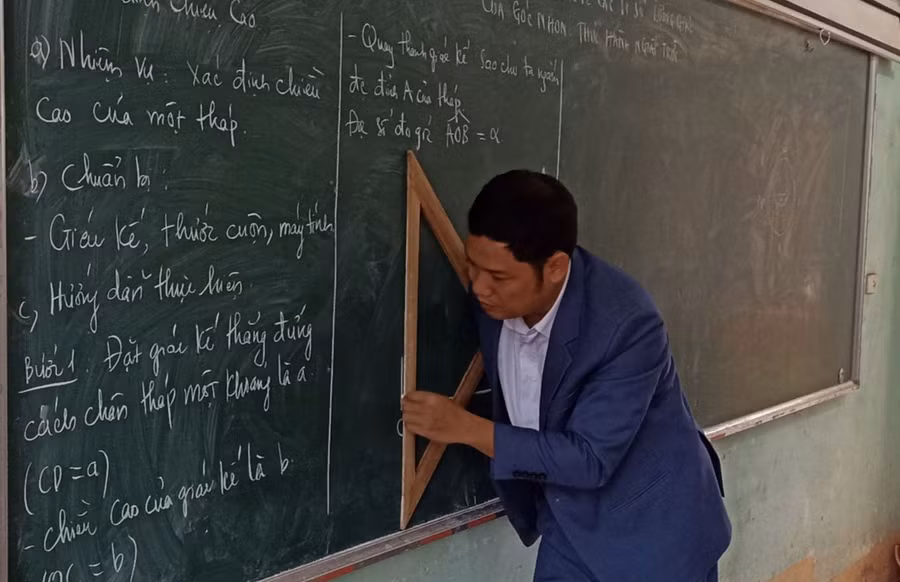 định Chiều Cao
a) Nhiệm Vụ: Xác định chiều
Cao của một tháp.
b) Chuẩn bị:
- Giác kế, thước cuộn, máy tính
c, Hướng dẫn thực hiện.
Bước 1. Đặt giác kế thẳng đứng
cách chân tháp một khoảng là a.
(CD = a)
- chiều cao của giác kế là b
(OC = b)
- Quay thanh giác kế sao cho ta ngắm
đc đỉnh A của tháp
Đọc số đo góc AOB = α
CÁC TỈ SỐ LƯỢNG GIÁC
CỦA GÓC NHỌN. THỰC HÀNH NGOÀI TRỜI